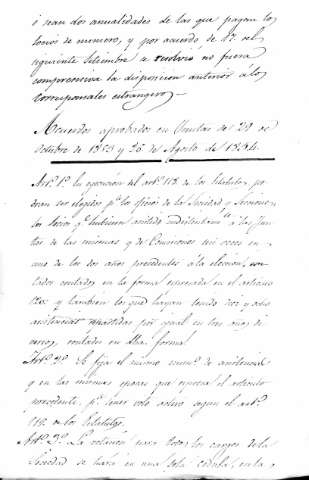 ó sean dos anualidades de las que pagan los
socios de numero, y por acuerdo de 2 del
siguiente Setiembre se resolvió no fuera
comprensiva la disposicion anterior á los
corresponsales estrangeros—
Acuerdos aprobados en Juntas de 28 de
Octubre de 1853 y 26 de Agosto de 1854.
Art.º 1.º En ejecucion del art.º 118 de los Estatutos, po
dran ser elegidos p.ª los oficios de la Sociedad y
los socios q.e hubieren asistido á las Jun
tas de las mismas y de Comisiones veces en
uno de los dos años precedentes á la eleccion, con
tados contados en la forma espresada en el articulo
120: y tambien los que hayan tenido diez y ocho
asistencias repartidas por igual en tres años di
versos, contados en dicha forma.
Art.º 2.º Se fija el mismo num.º de asistencias
y en las mismas epocas que espresa el articulo
precedente, p.ª tener voto activo segun el art.º
119 de los Estatutos.
Art.º 3.º La votacion para todos los cargos de la
Sociedad se hará en una sola cedula, en la q